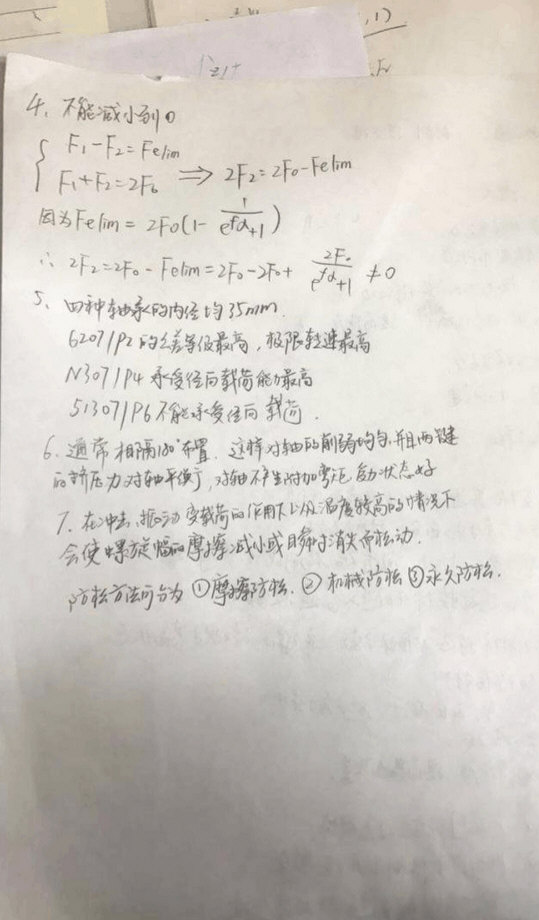 4、不能减小到0
F₁-F₂=Felim
F₁+F₂=2F₀ ⟹ 2F₂=2F₀-Felim
因为Felim=2F₀(1-1/(e^fα+1))
∴ 2F₂=2F₀-Felim=2F₀-2F₀+2F₀/(e^fα+1)≠0
5、四种轴承的内径均35mm.
6207/P2的公差等级最高,极限转速最高
N307/P4承受径向载荷能力最高
51307/P6不能承受径向载荷.
6、通常相隔180°布置.这样对轴的削弱均匀.并且两键
的挤压力对轴平衡,对轴不产生附加弯矩,受力状态好
7、在冲击、振动变载荷的作用下以及温度较高的情况下
会使螺旋幅的摩擦减小或瞬时消失而松动.
防松方法可分为①摩擦防松.②机械防松③永久防松.